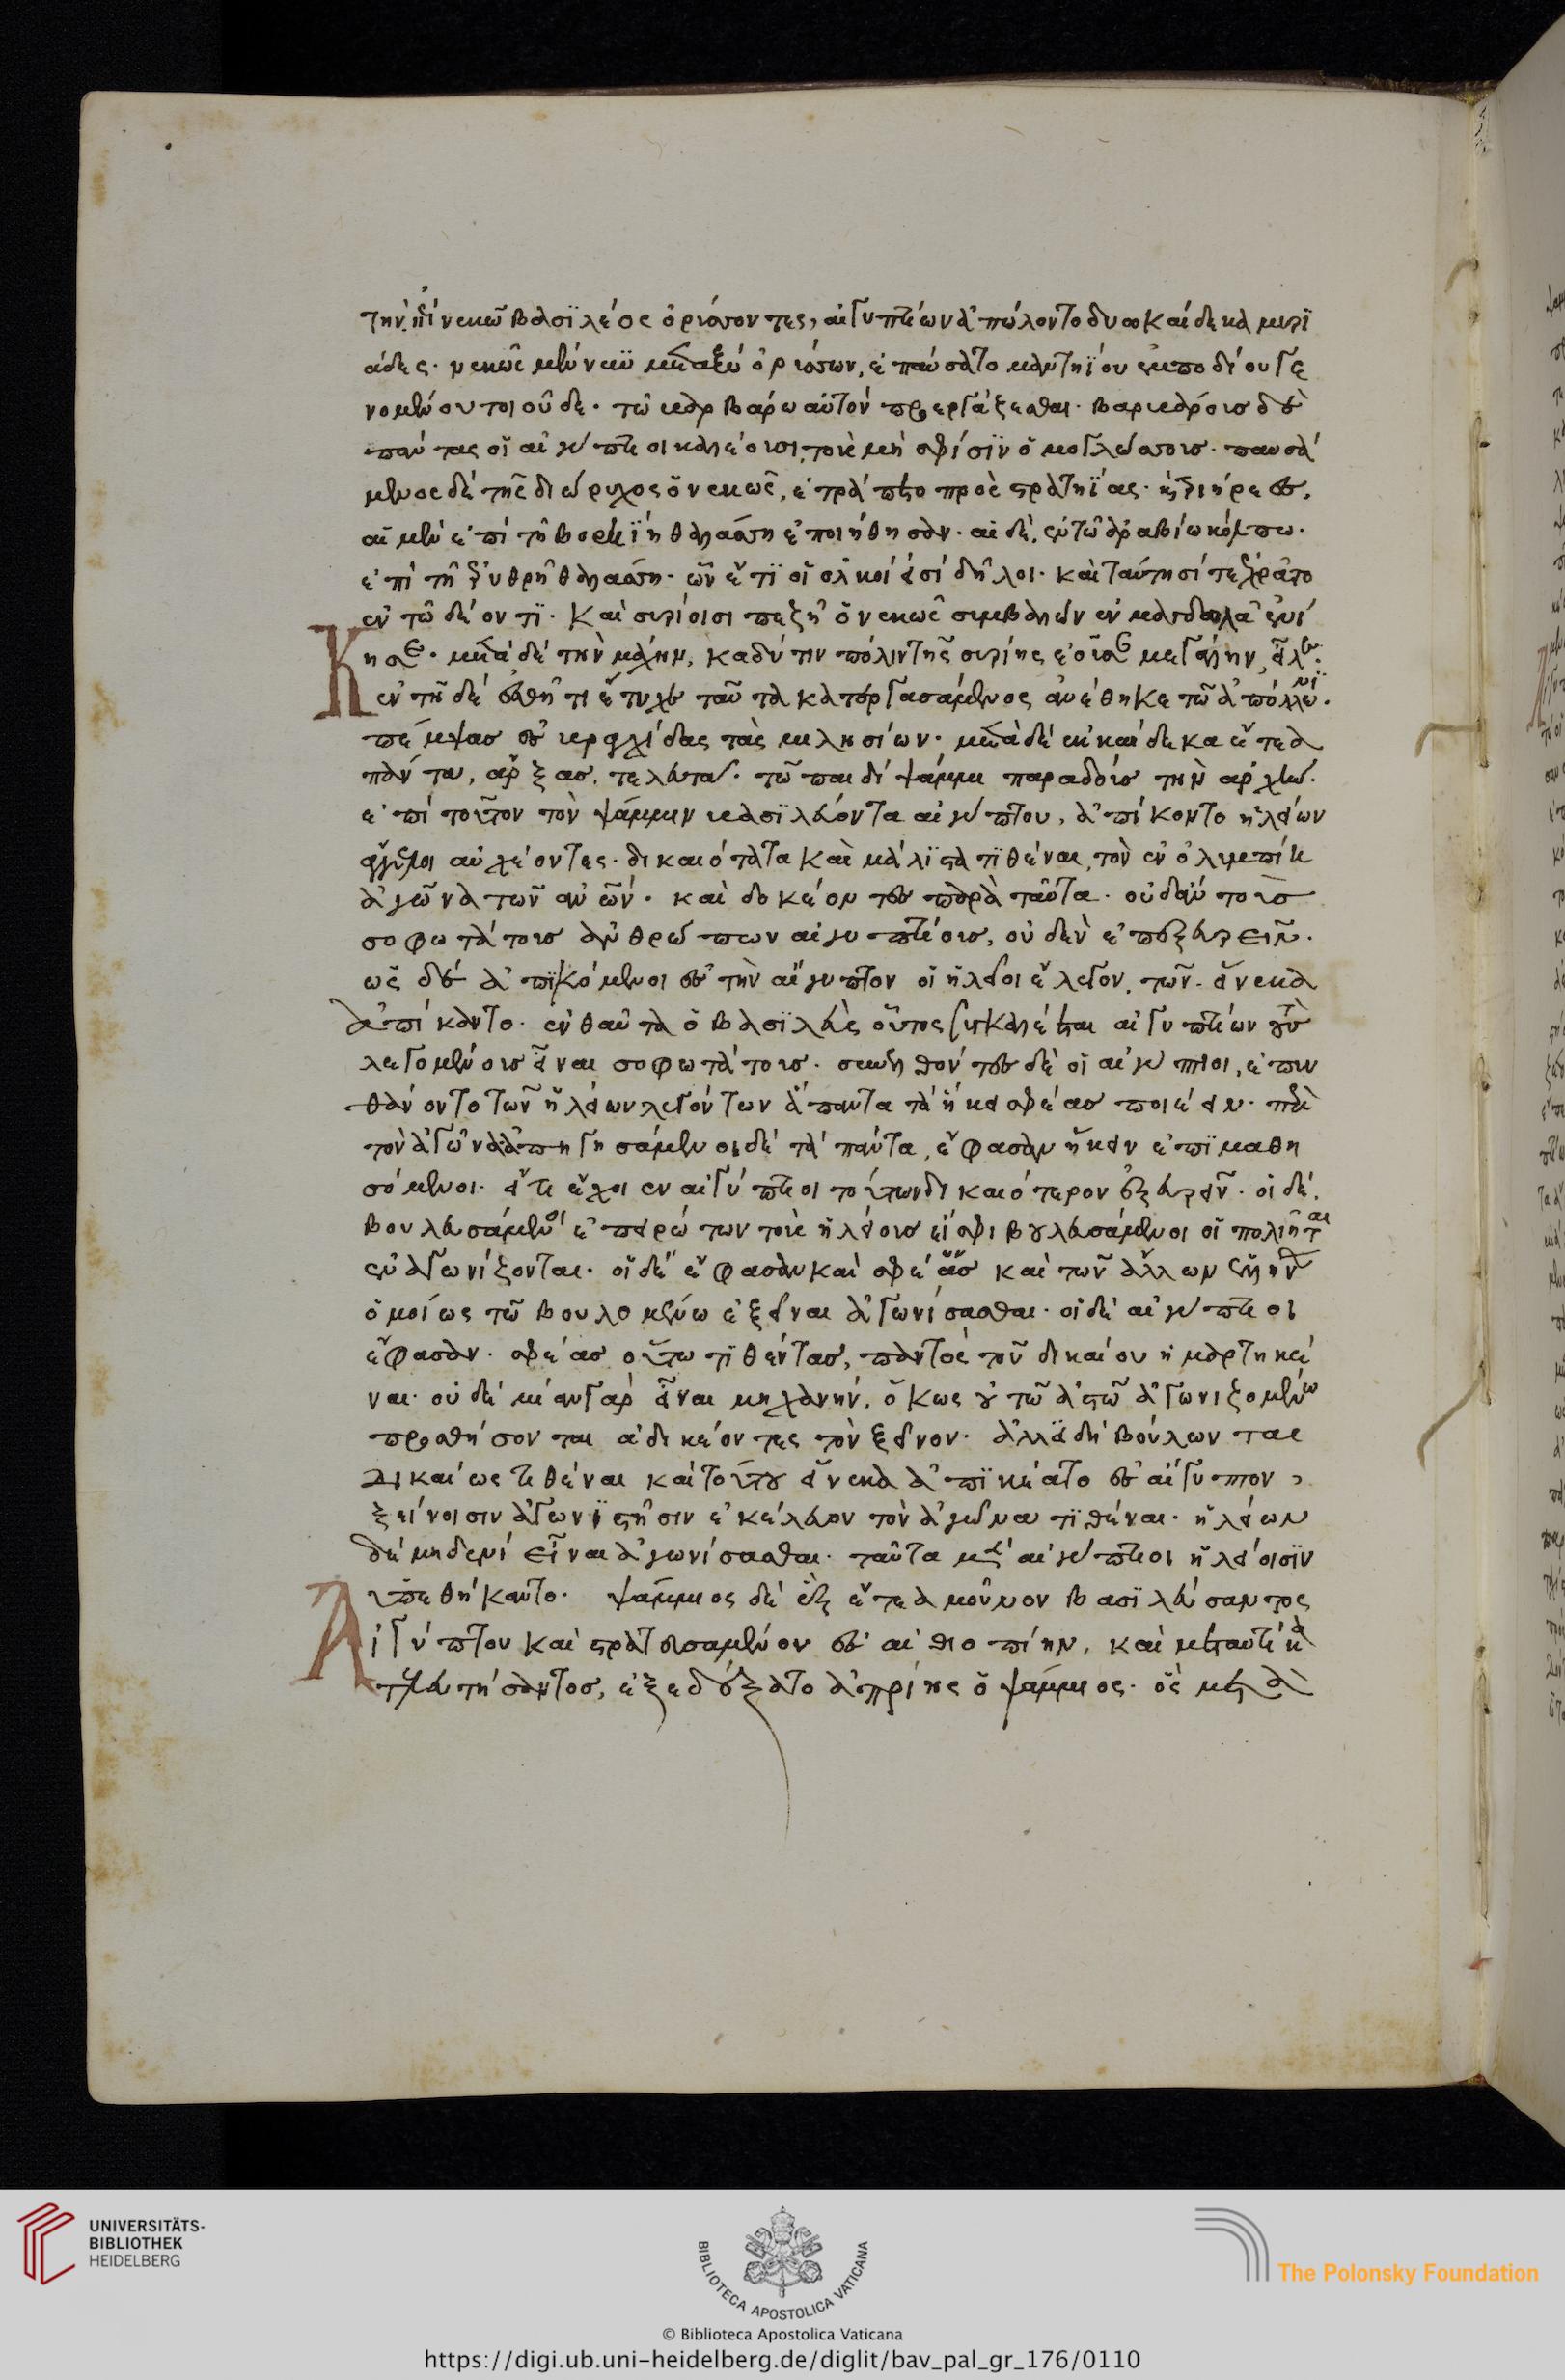 τὴν ἐπὶ νεκῶ βασϊλέος ὀρύσσοντες, αἰγυπτίων ἀπώλοντο δυοκαίδεκα μυρϊ
άδες. νεκῶς μέν νυν μεταξὺ ὀρύσσων, ἐπαύσατο μαντηΐου ἐμποδίου γε
νομένου τοιοῦδε. τῶ βαρβάρω αὐτὸν προεργάζεσθαι. βαρβάρους δὲ
πάντας οἱ αἰγύπτιοι καλέουσι, τοὺς μὴ σφίσϊν ὁμογλώσσους. παυσά
μενος δὲ τῆς διώρυχος ὁ νεκῶς, ἐτράπετο πρὸς στρατηΐας. καὶ τριήρεες,
αἱ μὲν ἐπὶ τῆ βορηΐη θαλάσση ἐποιήθησαν. αἱ δὲ, ἐν τῶ ἀραβίω κόλπω.
ἐπὶ τῆ ἐρυθρῆ θαλάσση. ὧν ἔτϊ οἱ ὁλκοί εἰσί δῆλοι. καὶ ταύτησί τε ἐχρᾶτο
ἐν τῶ δέοντϊ. Καὶ συρίοισι πεζῆ ὁ νεκῶς συμβαλὼν ἐν μαγδώλω ἐνί
κησε. μετὰ δὲ τὴν μάχην, κάδυτιν πόλιν τῆς συρίης ἐοῦσαν μεγάλην, εἷλεν.
Κ ἐν τῆ δὲ ἐσθῆτι ἔτυχε ταῦτα κατεργασάμενος ἀνέθηκε τῶ ἀπόλλωνϊ.
πέμψας ἐς βραγχίδας τὰς μιλησίων. μετὰ δὲ ἑκκαίδεκα ἔτεα
πάντα, ἄρξας, τελευτᾶ. τῶ παιδὶ ψάμμι παραδοὺς τὴν ἀρχήν.
ἐπὶ τοῦτον τὸν ψάμμιν βασϊλεύοντα αἰγύπτου, ἀπίκοντο ἠλείων
ἄγγελοι αὐχέοντες. δικαιότατα καὶ κάλϊστα τϊθέναι, τὸν ἐν ὀλυμπίη
ἀγῶνα πάντων ἀνθρώπων. καὶ δοκέοντες παρὰ ταῦτα. οὐδ᾽ ἂν τοὺς
σοφωτάτους ἀνθρώπων αἰγυπτίους, οὐδὲν ἐπεξευρεῖν.
ὡς δὲ ἀπϊκόμενοι ἐς τὴν αἴγυπτον οἱ ἠλεῖοι ἔλεγον, τῶν. εἵνεκα
ἀπίκαντο. ἐνθαῦτα ὁ βασϊλεὺς οὗτος συγκαλέεται αἰγυπτίων τοὺς
λεγομένους εἶναι σοφωτάτους. συνελθόντες δὲ οἱ αἰγύπτιοι, ἐπυν
θάνοντο τῶν ἠλείων λεγόντων ἅπαντα τὰ ἥκει σφέας ποιέειν. περὶ
τὸν ἀγῶνα ἀπηγησάμενοι δὲ τὰ πάντα, ἔφασαν ἥκειν ἐπϊμαθη
σόμενοι. εἴ τι ἔχοιεν αἰγύπτιοι τούτων δικαιότερον ἐξευρεῖν. οἱ δὲ.
βουλευσάμενοι ἐπειρώτων τοὺς ἠλείους εἴ σφι βουλευσάμενοι οἱ πολιῆται
ἐναγωνίζονται. οἱ δὲ ἔφασαν καὶ σφέας καὶ τῶν ἄλλων ἑλλήνων
ὁμοίως τῶ βουλομένω ἐξεῖναι ἀγωνίσασθαι. οἱ δὲ αἰγύπτιοι
ἔφασαν. σφέας οὕτω τϊθέντας, παντὸς τοῦ δικαίου ἡμαρτηκέ
ναι. οὐδεμίαν γὰρ εἶναι μηχανήν. ὅκως οὐ τῶ ἀστῶ ἀγωνιζομένω
προσθήσονται ἀδικέοντες τὸν ξεῖνον. ἀλλ᾽ εἰ δὴ βούλονται
δικαίως τιθέναι καὶ τούτου εἵνεκα ἀπϊκέατο ἐς αἴγυπτον,
ξείνοισιν ἀγωνϊστῆσιν ἐκέλευον τὸν ἀγῶνα τϊθέναι. ἠλείων
δὲ μηδενὶ εἶναι ἀγωνίσασθαι. ταῦτα μὲν αἰγύπτιοι ἠλείοισϊν
ὑπεθήκαντο. ψάμμιος δὲ ἓξ ἔτεα μοῦνον βασϊλεύσαντος
Αἰγύπτου καὶ στρατευσαμένου ἐς αἰθιοπίην, καὶ μεταυτίκα
τελευτήσαντος, ἐξεδέξατο ἀπρίης ὁ ψάμμιος. ὃς μετὰ
UNIVERSITÄTS-
BIBLIOTHEK
HEIDELBERG
BIBLIOTECA APOSTOLICA VATICANA
The Polonsky Foundation
© Biblioteca Apostolica Vaticana
https://digi.ub.uni-heidelberg.de/diglit/bav_pal_gr_176/0110